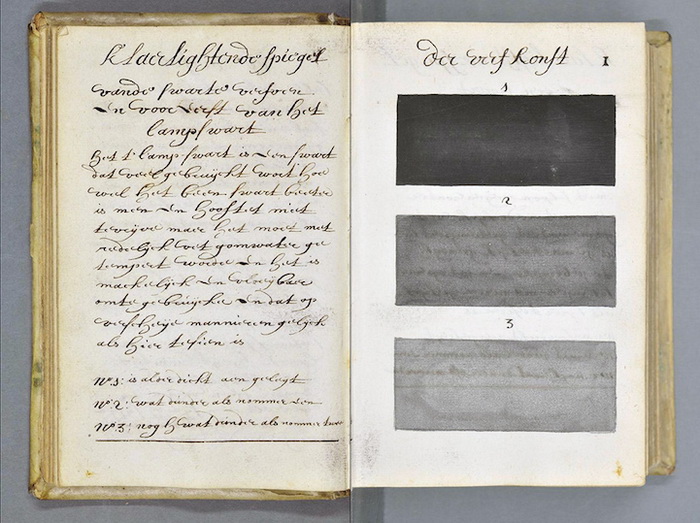 klaerlightende spiegel
vande swarte verfven
en voor eerst van het
lampswart
het t' lampswart is een swart
dat veel gebruijckt wort hoe
wel het been swart beeter
is men en hooftet niet
te vrijve maer het moet met
redelijck vet gomwater ge
tempert worde en het is
mackelijck en vloeijbaer
omte gebruijcke en dat op
verscheije mannieren gelijck
als hier te sien is
No 1: is alder dicht aen gelegt
No 2: wat dunder als nommer een
No 3: nog h wat dunder als nommer twee
der verf konst
1
1
2
3